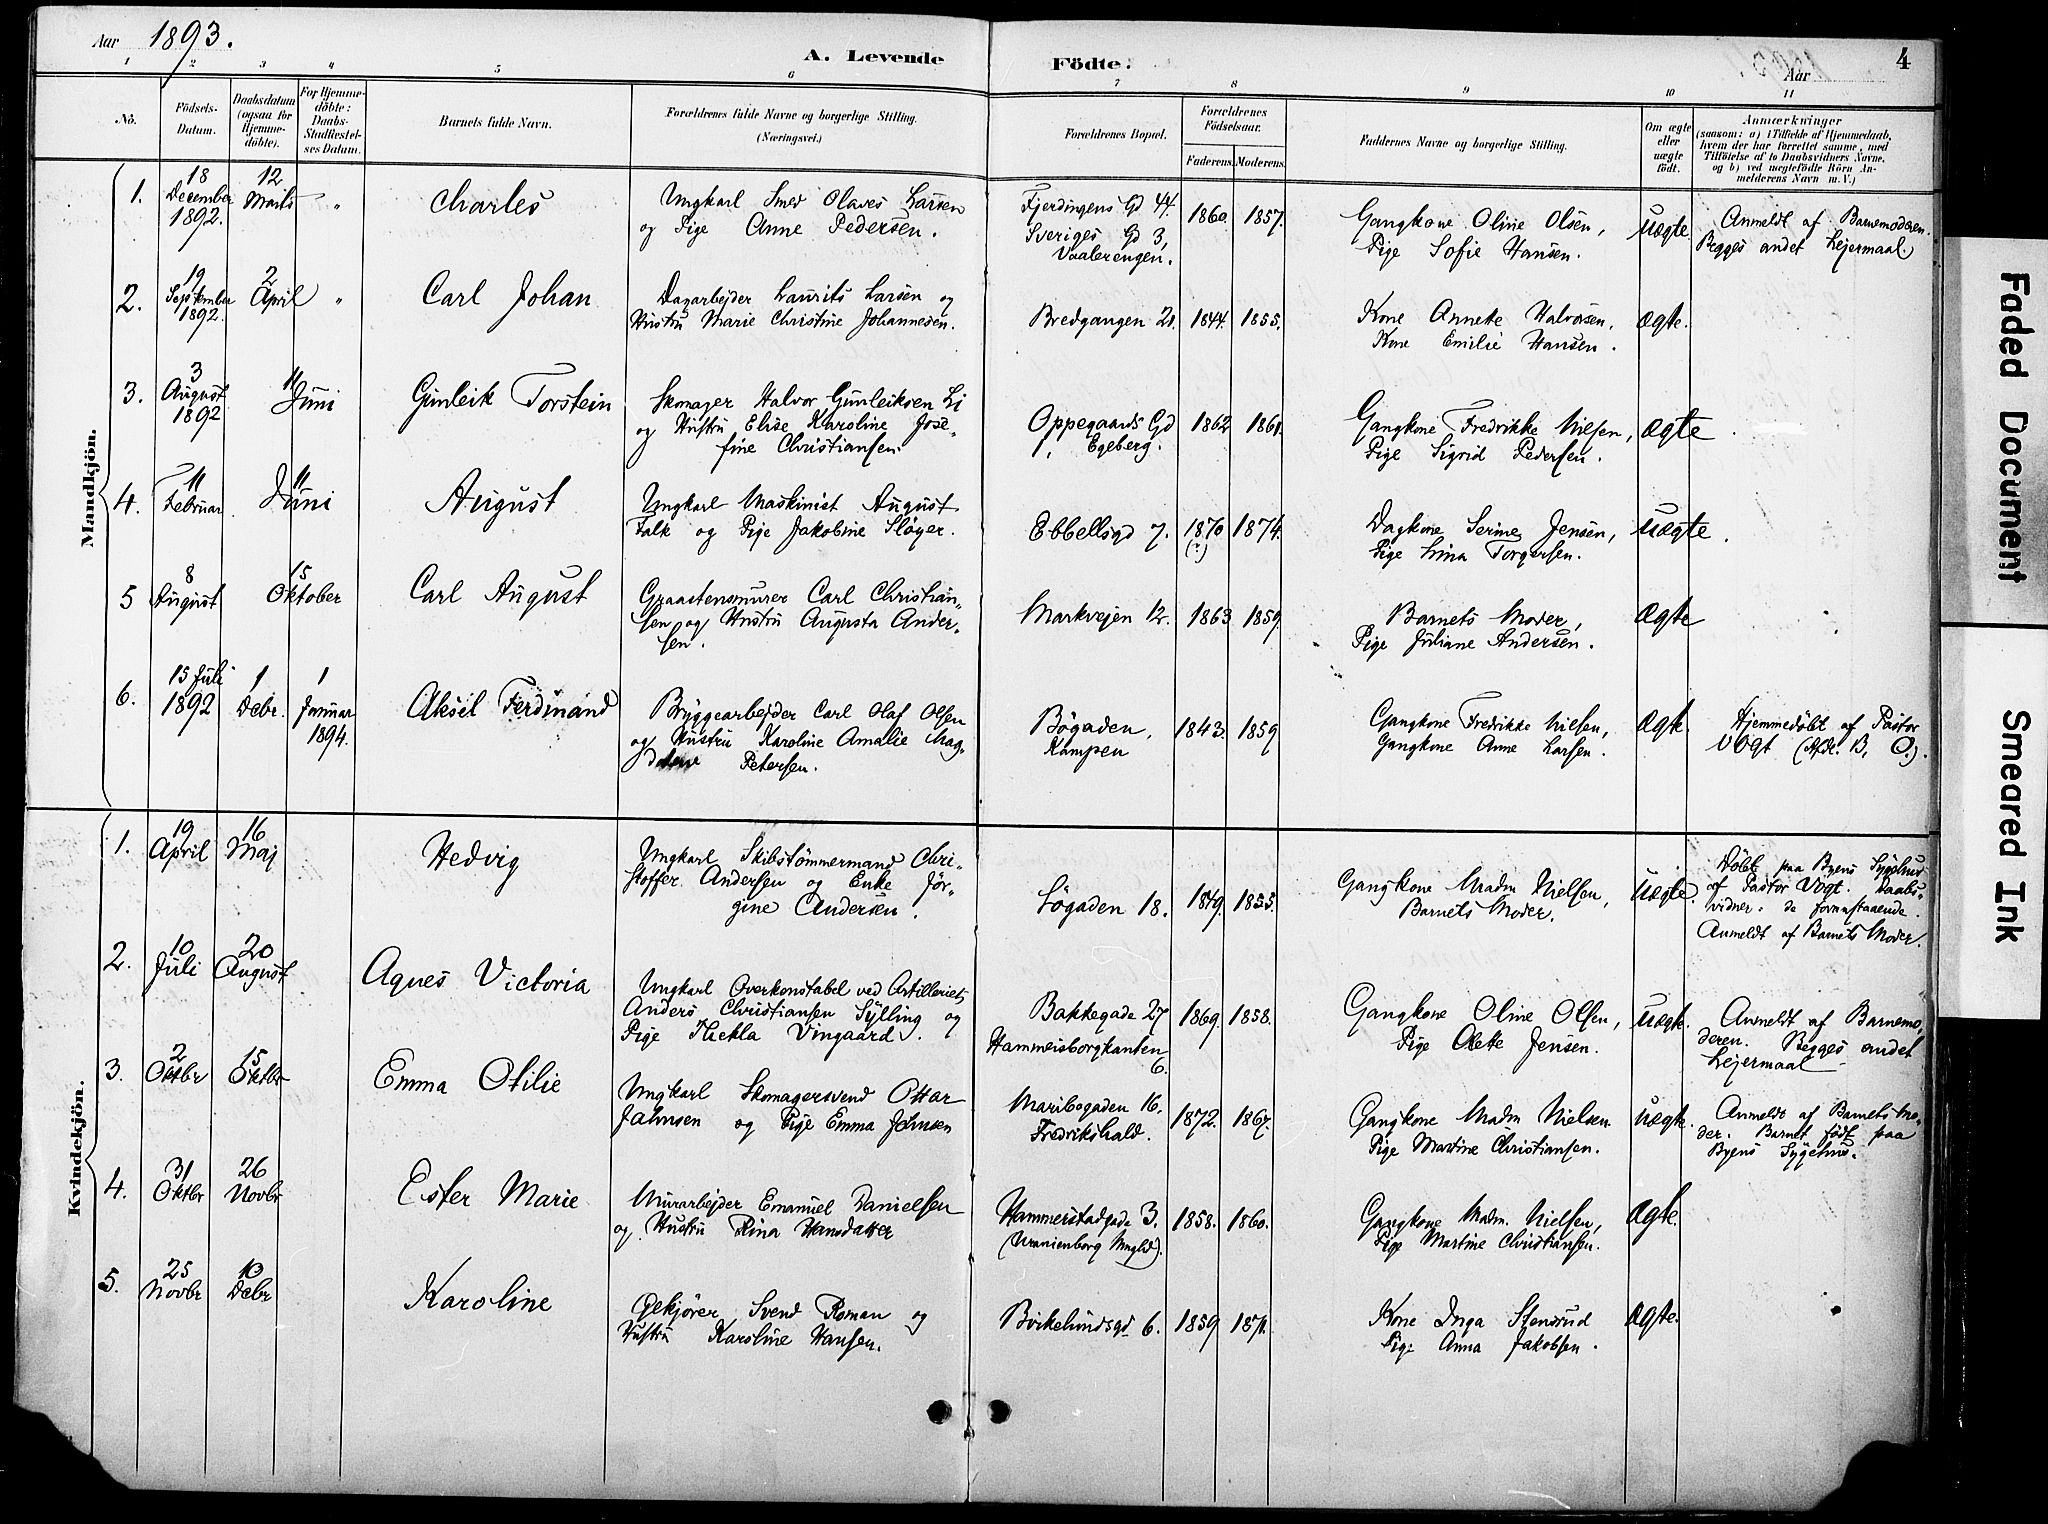 Aar 1893.
A. Levende Födte.
Aar
4
1 2 3 4 5 6 7 8 9 10 11
No.
Födsels-
Datum.
Daabsdatum
(ogsaa for
Hjemme-
döbte).
For Hjemme-
döbte:
Daabs-
Stadfæstel-
ses Datum.
Barnets fulde Navn.
Forældrenes fulde Navne og borgerlige Stilling.
(Næringsvei.)
Forældrenes Bopæl.
Forældrenes
Födselsaar.
Faderens. Moderens.
Faddernes Navne og borgerlige Stilling.
Om ægte
eller
uægte
födt.
Anmærkninger
(saasom: a) i Tilfælde af Hjemmedaab,
hvem der har forrettet samme, med
Tilföielse af to Daabsvidners Navne,
og b) ved uægtefödte Börn An-
melderens Navn m. V.)
Mandkjön.
1.
18
December
1892.
12
Marts
"
Charles
Ungkarl Smed Olaves Larsen
og Pige Anne Pedersen.
Fjerdingens Gd 44.
Sveriges Gd 3,
Vaalerengen.
1860. 1857.
Gangkone Oline Olsen,
Pige Sofie Hansen.
Uægte.
Anmeldt af Barnemoderen.
Begges andet Lejermaal.
2.
19
September
1892.
2
April
"
Carl Johan
Dagarbejder Laurits Larsen og
Hustru Marie Christine Johannesen.
Bredgangen 21.
1844. 1855.
Kone Annette Halvorsen,
Kone Emilie Hansen.
Ægte.
3.
3
August
1892
11
Juni
Gunleik Torstein
Skomager Halvor Gunleiksen Li
og Hustru Elise Karoline Jose-
fine Christiansen.
Oppegaards Gd
Egeberg.
1862 1861.
Gangkone Fredrikke Nielsen,
Pige Sigrid Pedersen.
Ægte
4.
11
Februar
11
Juni
August
Ungkarl Maskinist August
Falk og Pige Jakobine Sløyer.
Ebbellsgd 7.
1870
(?)
1874.
Dagkone Serine Jensen,
Pige Lina Torgersen.
Uægte.
5
8
August
15
Oktober
Carl August
Graastensmurer Carl Christian-
sen og Hustru Augusta Ander-
sen.
Markvejen 12.
1863 1859.
Barnets Moder,
Pige Juliane Andersen.
Ægte
6.
15 Juli
1892
1
Debr.
1
Januar
1894.
Aksel Ferdinand
Bryggearbejder Carl Olaf Olsen
og Hustru Karoline Amalie Mag-
dalene Petersen.
Bögaden,
Kampen
1843. 1859
Gangkone Fredrikke Nielsen,
Gangkone Anne Larsen.
Ægte.
Hjemmedöbt af Pastor
Vogt (Afdl. B, C.).
Kvindekjön.
1.
19
April
16
Maj
Hedvig
Ungkarl Skibstömmermand Chri-
stoffer Andersen og Enke Jör-
gine Andersen.
Søgaden 18.
1849. 1855.
Gangkone Madm Nielsen,
Barnets Moder.
Uægte.
Döbt paa Byens Sygehus
af Pastor Vogt. Daabs-
vidner: de foranstaaende.
Anmeldt af Barnets Moder.
2.
10
Juli
20
August
Agnes Victoria
Ungkarl Overkonstabel ved Artilleriet
Anders Christiansen Sylling og
Pige Thekla Vingaard.
Bakkegade 27
Hammersborgkanten
6.
1869. 1858.
Gangkone Oline Olsen,
Pige Olette Jensen.
Uægte.
Anmeldt af Barnemo-
deren. Begges andet
Lejermaal
3.
2
Oktbr
15
Oktbr
Emma Otilie
Ungkarl Skomagersvend Ottar
Jahnsen og Pige Emma Johnsen
Maribogaden 16.
Fredrikshald.
1872. 1867.
Gangkone Madm Nielsen
Pige Martine Christiansen.
Uægte.
Anmeldt af Barnets Mo-
der. Barnet født paa
Byens Sygehus.
4.
31
Oktbr
26
Novbr
Ester Marie
Murarbejder Emanuel Danielsen
og Hustru Rina Hansdatter
Hammerstadgade 3.
(Uranienborg Mghd).
1858. 1860.
Gangkone Madm. Nielsen,
Pige Martine Christiansen.
Ægte.
5.
25
Novbr
10
Debr
Karoline
Ølkjører Svend Roman og
Hustru Karoline Hansen.
Birkelundsgd 6.
1859 1871.
Kone Inga Stensrud
Pige Anna Jakobsen.
Ægte.
Faded Document
Smeared Ink